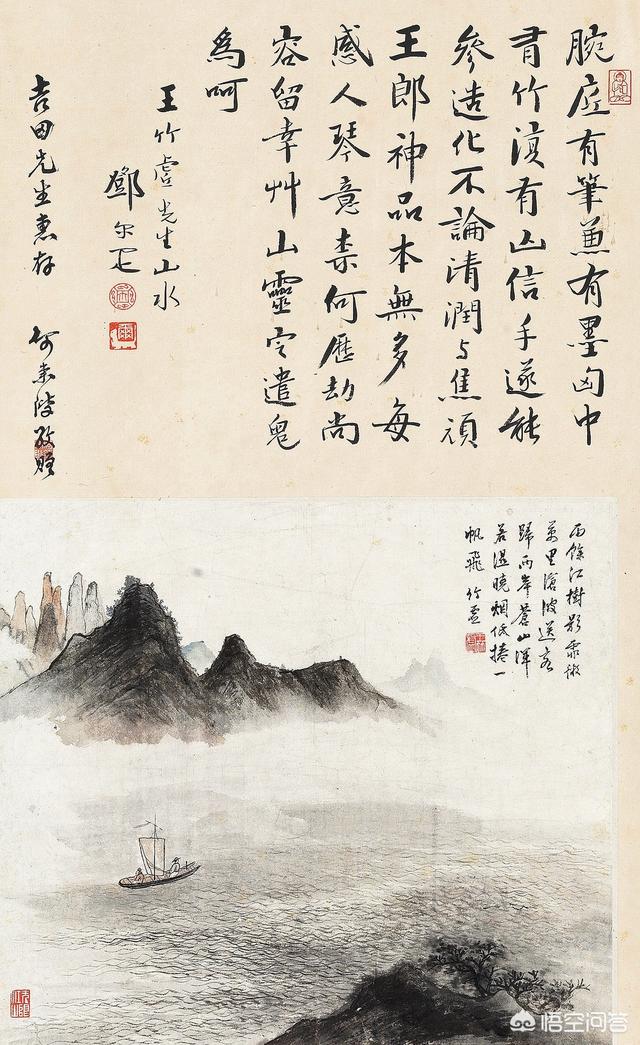 腕底有筆兼有墨匈中
有竹復有山信手遂能
參造化不論清潤与焦頑
王郎神品本無多每
感人琴意柰何歷劫尚
容留幸艸山靈定遣鬼
爲呵
王竹虛先生山水
鄧尔疋
吉田先生惠存 何秉陵敬贈
雨餘江樹影霏微
萬里滄波送客
歸兩岸蒼山渾
若濕曉烟低捲一
帆飛 竹虛
悟空问答